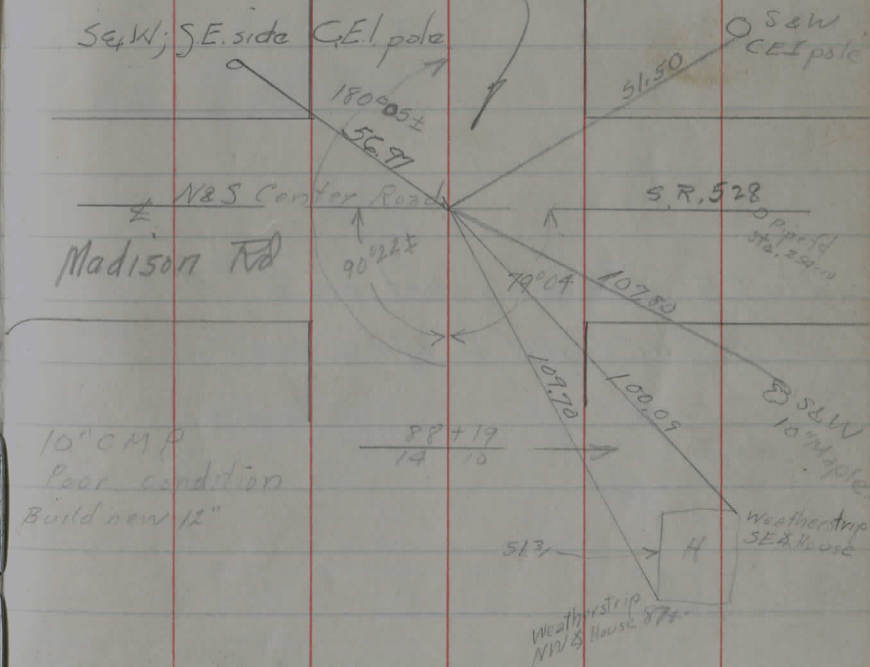 S&W; S.E. side C.E.I. pole
S&W
CEI pole
180°05±
56.97
51.50
N&S Center Road
S.R. 528
Pipe fd
Madison Rd
90°22±
79°04
107.80
109.70
100.09
S&W
10" Maple
10" C M P
Poor condition
Build new 12"
88+19
14 10
Weatherstrip
House
H
Weatherstrip
House 87±